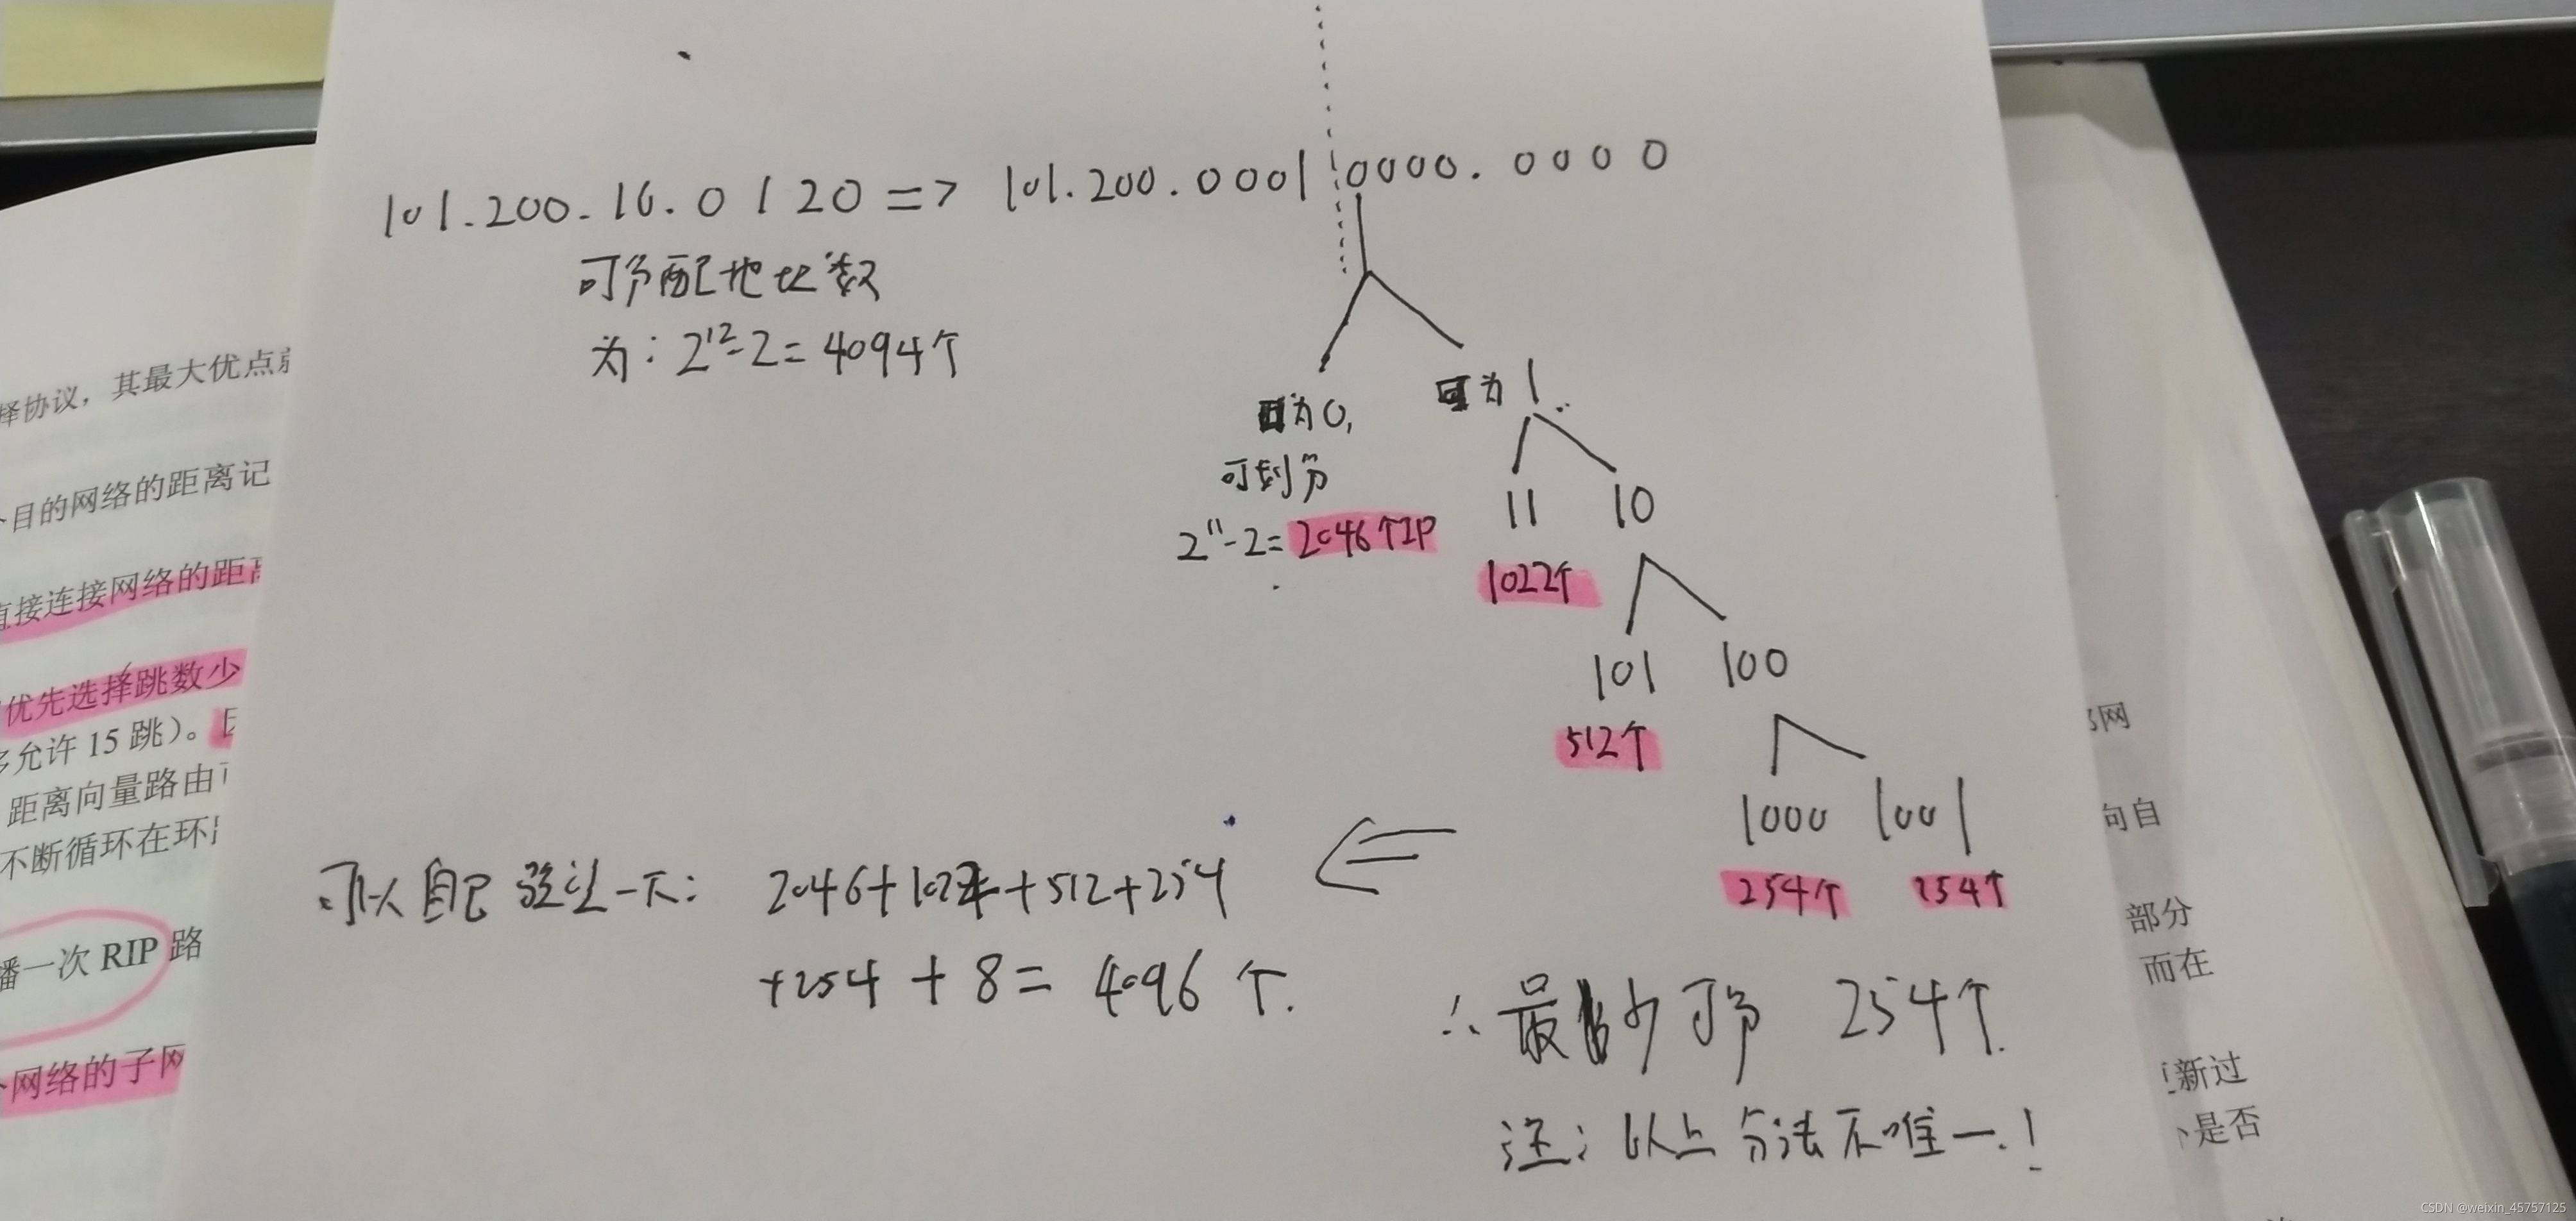 101.200.16.0 / 20 => 101.200.0001 0000.0000
可分配地址数
为：2¹²-2=4094个
为0,
可划分
2¹¹-2=2046个IP
为1
11 10
1022个
101 100
512个
1000 1001
254个 254个
可以自己验证一下： 2046+1022+512+254
+254+8=4096个.
∴最少可分 254个.
注：以上分法不唯一.！
择协议，其最大优点
个目的网络的距离记
直接连接网络的距
优先选择跳数少
多允许 15 跳）。
距离向量路由
不断循环在环
播一次 RIP 路
网络的子网
网
向自
部分
而在
新过
是否
CSDN @weixin_45757125